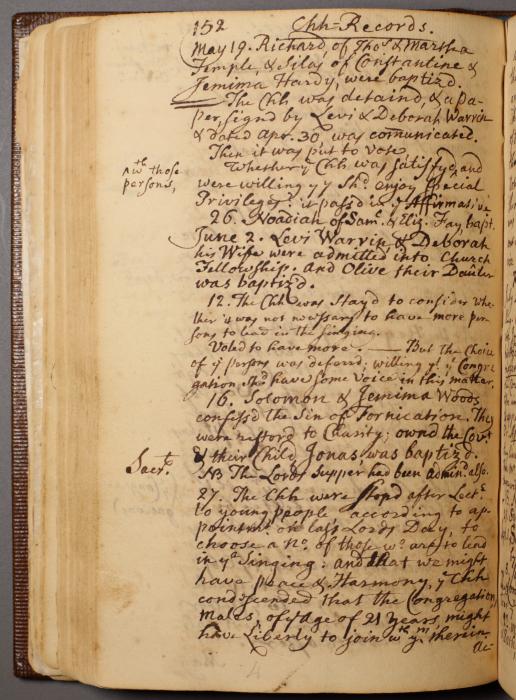 152 Chh Records.
May 19. Richard, of Thos & Martha
Temple, & Silas of Constantine &
Jemima Hardy, were baptiz'd.
The Chh was detaind, & a Pa-
per, signd by Levi & Deborah Warrin
& dated Apr. 30 was comunicated.
Then it was put to vote
Whether ye Chh was satisfyd, and
^ wth those
persons,
were willing yy Shd enjoy special
Priviledges. it pass'd in ye Affirmative
26. Noadiah of Saml & Eliz. Fay bapt.
June 2. Levi Warrin & Deborah
his Wife were admitted into Church
Fellowship. and Olive their Dauter
was baptiz'd.
12. The Chh was Stayd to consider whe-
ther it was not necessary to have more per
sons to lead in the singing.
Voted to have more. — But the Choice
of ye persons was deferrd; willing yt ye Congre
gation shd have some voice in this matter.
16. Solomon & Jemima Woods
confess'd the Sin of Fornication. They
were restord to Charity; ownd the Covt
& their Child Jonas was baptiz'd.
Sacrt.
NB The Lords Supper had been admind also.
27. The Chh were stopd after Lecte
to young people according to ap-
pointmt on last Lords Day, to
choose a no. of those wo are to lead
in ye Singing: and that we might
have peace & Harmony, ye Chh
condescended that the Congregation,
Males, of ye age of 21 years, might
have Liberty to join wth ym therein.
&c